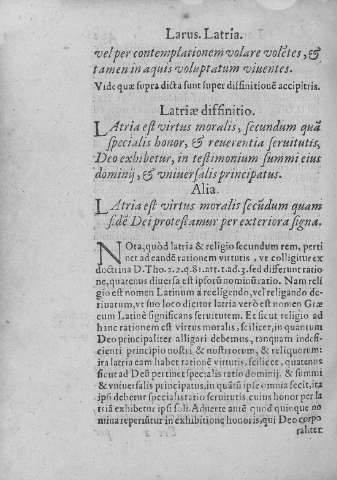 Larus. Latria.
vel per contemplationem volare volẽtes, &
tamen in aquis voluptatum viuentes.
Vide quæ supra dicta sunt super diffinitionẽ accipitris.
Latriæ diffinitio.
LAtria est virtus moralis, secundum quã
specialis honor, & reuerentia seruitutis,
Deo exhibetur, in testimonium summi eius
dominij, & vniuersalis principatus.
Alia.
LAtria est virtus moralis secũdum quam
fidẽ Dei protestamur per exteriora signa.
NOta, quòd latria & religio secundum rem, perti
net ad eandẽ rationem virtutis, vt colligitur ex
doctrina D. Tho. 2.2. q. 81. art. 1. ad. 3. sed differunt ratio
ne, quatenus diuersa est ipsorũ nominũ ratio. Nam reli
gio est nomen Latinum à reeligendo, vel religando de-
riuatum, vt suo loco dicitur latria verò est nomen Græ
cum Latinè significans seruitutem. Et sicut religio ad
hanc rationem est virtus moralis, scilicet, in quantum
Deo principaliter alligari debemus, tanquam indefi-
cienti principio nostri & nostrorum, & reliquorum:
ita latria eam habet rationẽ virtutis, scilicet, quatenus
sicut ad Deũ pertinet specialis ratio dominij, & summi
& vniuersalis principatus, in quãtũ ipse omnia fecit, ita
ipsi debetur specialis ratio seruitutis, cuius honor per la
triã exhibetur ipsi soli. Aduerte autẽ quòd quinque no
mina reperiuntur in exhibitione honoris, qui Deo corpo
raliter